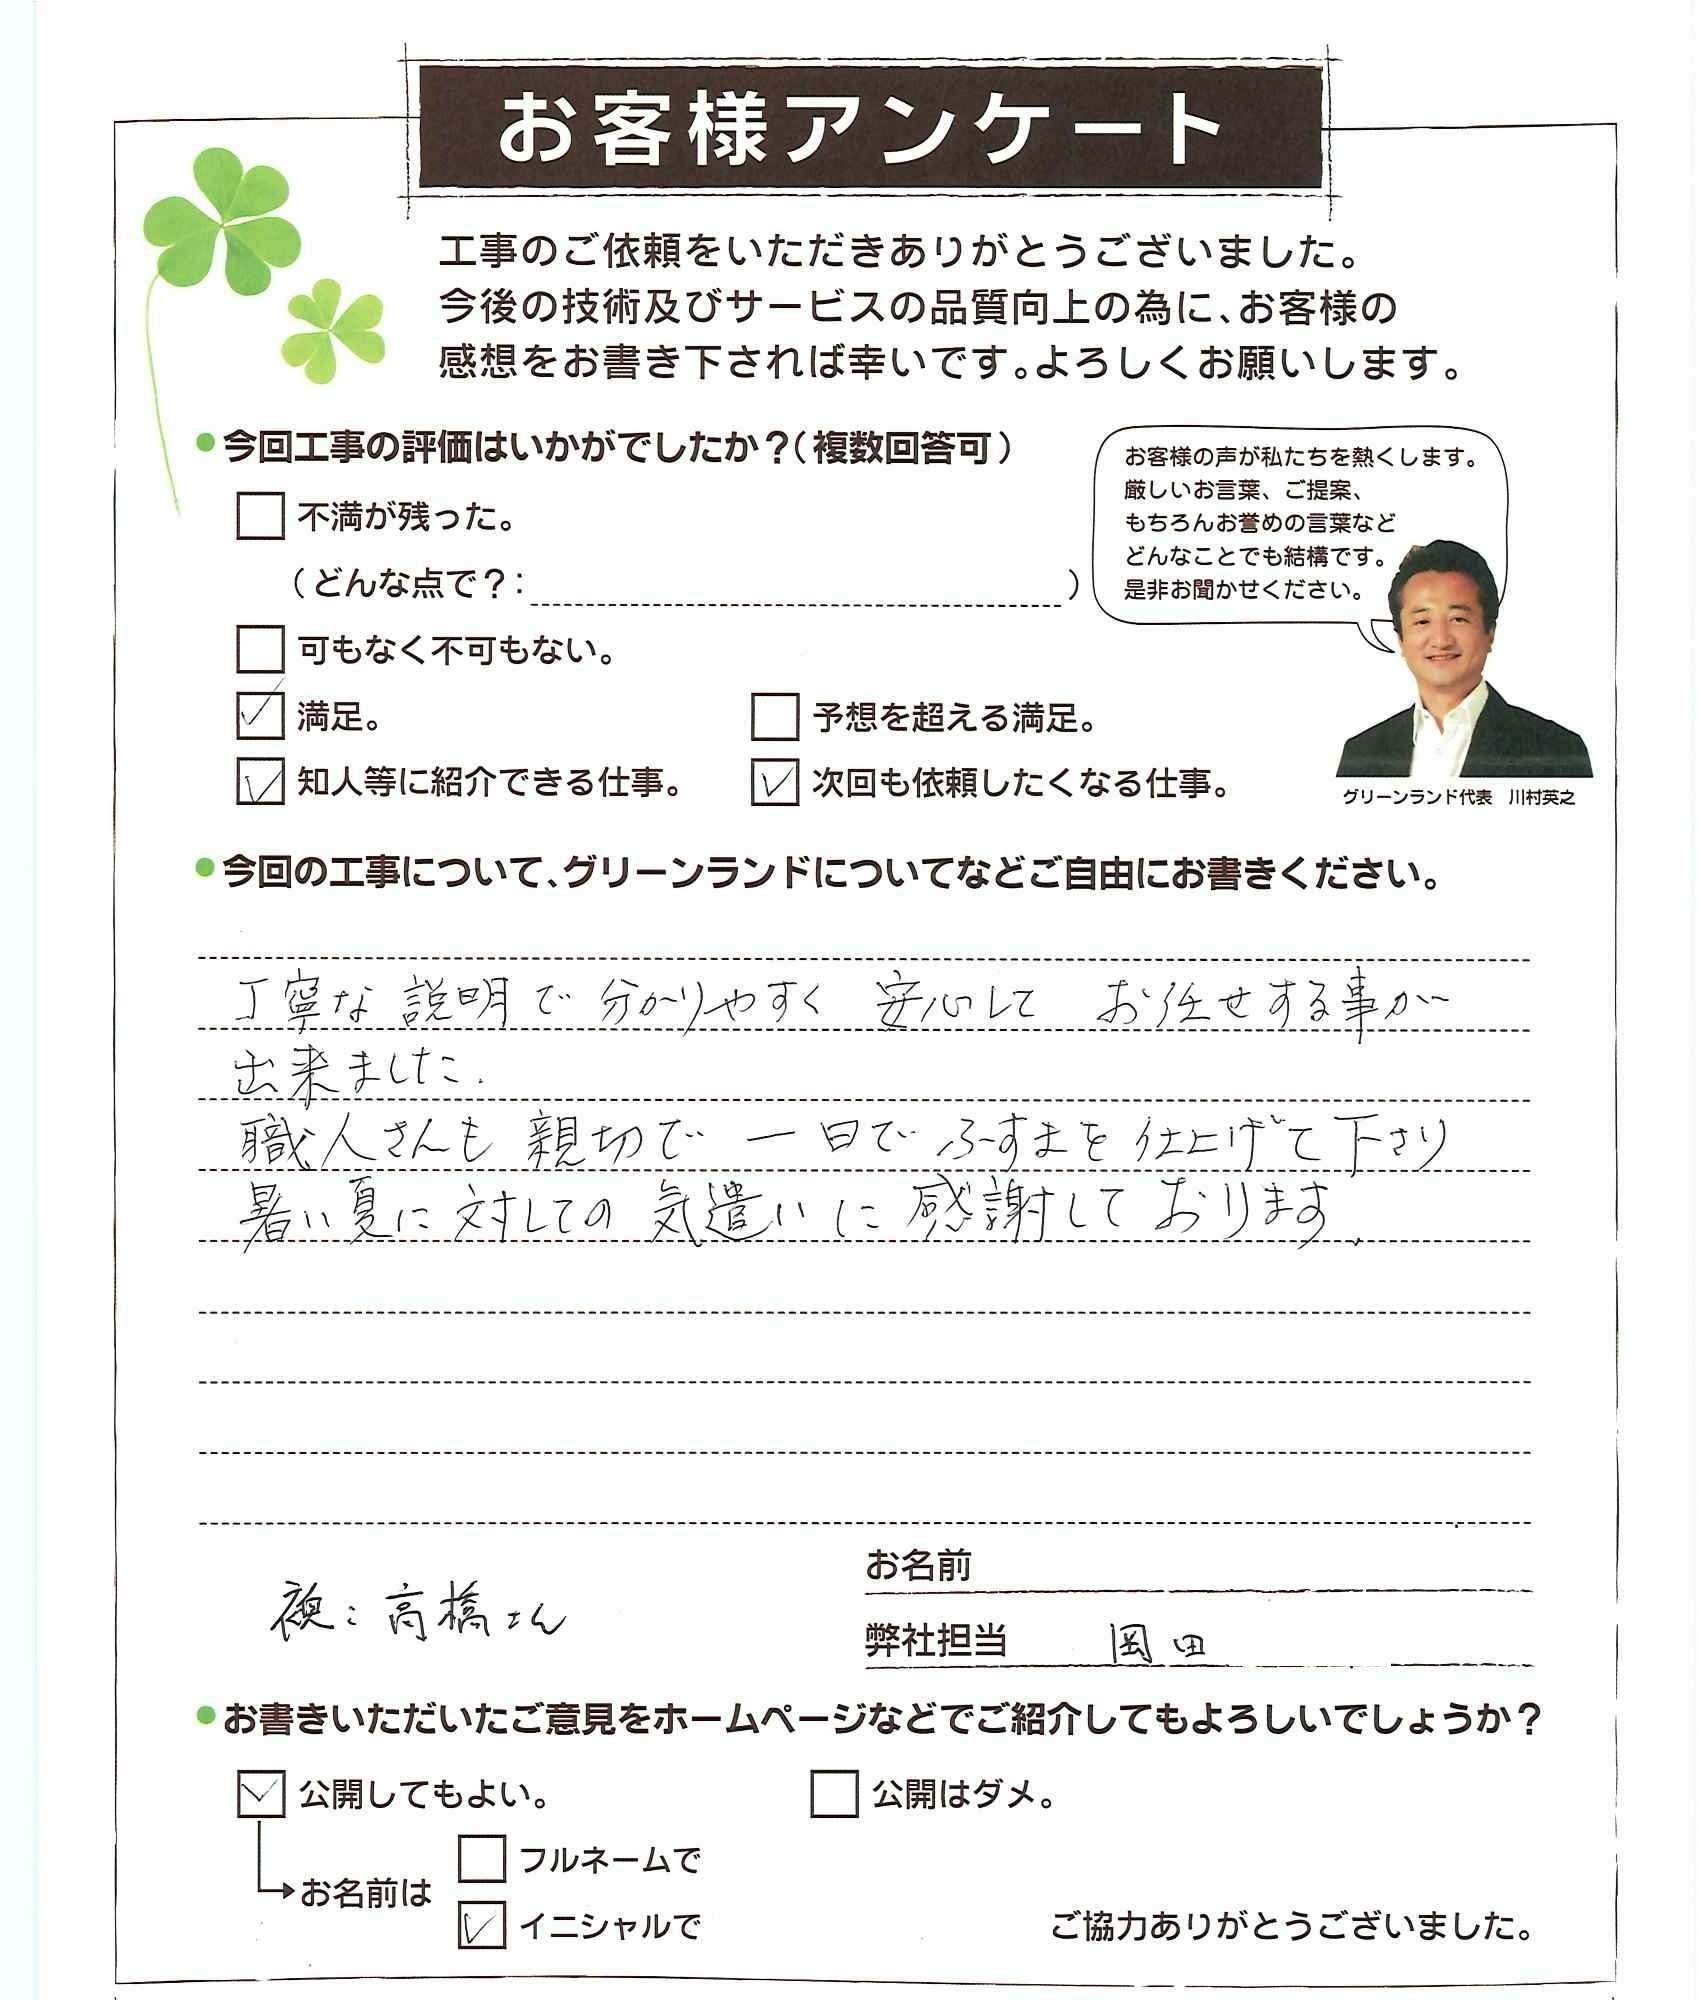 お客様アンケート
工事のご依頼をいただきありがとうございました。
今後の技術及びサービスの品質向上の為に、お客様の
感想をお書き下されば幸いです。よろしくお願いします。
●今回工事の評価はいかがでしたか？（複数回答可）
お客様の声が私たちを熱くします。
厳しいお言葉、ご提案、
もちろんお誉めの言葉など
どんなことでも結構です。
是非お聞かせください。
不満が残った。
（どんな点で？：　）
可もなく不可もない。
満足。
予想を超える満足。
知人等に紹介できる仕事。
次回も依頼したくなる仕事。
グリーンランド代表　川村英之
●今回の工事について、グリーンランドについてなどご自由にお書きください。
丁寧な説明で分かりやすく 安心して お任せする事が
出来ました.
職人さんも 親切で 一日で ふすまを 仕上げて下さり
暑い夏に対しての気遣いに感謝しております.
お名前
襖：高橋さん
弊社担当　岡田
●お書きいただいたご意見をホームページなどでご紹介してもよろしいでしょうか？
公開してもよい。
公開はダメ。
フルネームで
お名前は
イニシャルで
ご協力ありがとうございました。